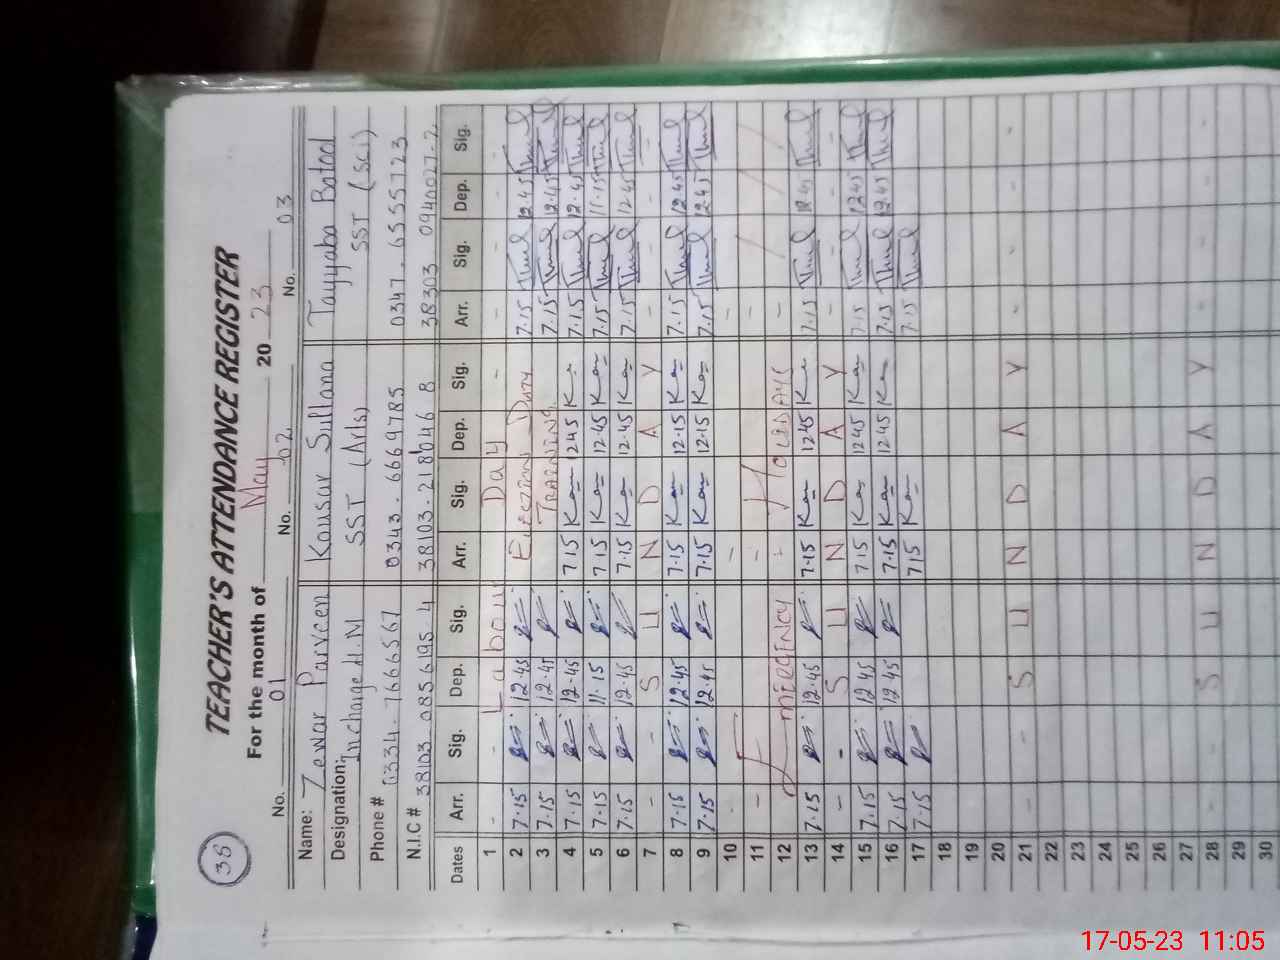 38
TEACHER'S ATTENDANCE REGISTER
For the month of May 2023
No. 01 No. 02 No. 03
Name: Zewar Parveen Kousar Sultana Tayyaba Batool
Designation: Incharge H.M SST (Arts) SST (Sci)
Phone # 0334-7666567 0343.6669785 0347.6555723
N.I.C # 38103-0856195-4 38103-218 46 8 38303 0940027-2
Dates Arr. Sig. Dep. Sig. Arr. Sig. Dep. Sig. Arr. Sig. Dep. Sig.
1 - - Labour Day - - - - -
2 7.15 12.45 Election Duty 7.15 12.45
3 7.15 12.45 Training 7.15 12.45
4 7.15 12.45 7.15 Kau 12.45 7.15 12.45
5 7.15 11.15 7.15 Kau 12.45 Kau 7.15 11.15
6 7.15 12.45 7.15 Kau 12.45 Kau 7.15 12.45
7 - - S U N D A Y - - - -
8 7.15 12.45 7.15 Kau 12.15 Kau 7.15 12.45
9 7.15 12.45 7.15 Kau 12.15 Kau 7.15 12.45
10 - - -
11 - - -
12 Emergency - Holidays -
13 7.15 12.45 7.15 Kau 12.45 7.15 12.45
14 - - S U N D A Y - - - -
15 7.15 12.45 7.15 Kau 12.45 Kau 7.15 12.45
16 7.15 12.45 7.15 Kau 12.45 Kau 7.15 12.45
17 7.15 7.15 Kau 7.15
18
19
20
21 - - S U N D A Y - - - -
22
23
24
25
26
27
28 - - S U N D A Y - - - -
29
30
17-05-23 11:05